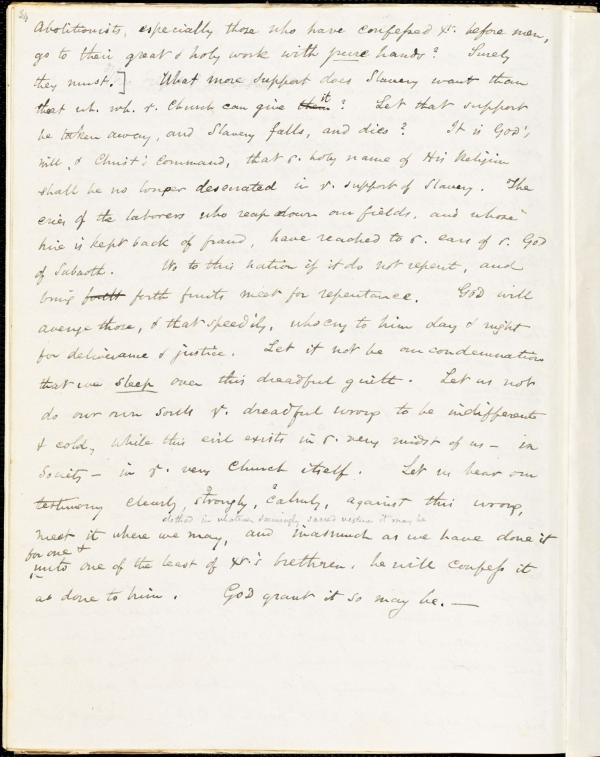 Abolitionists, especially those who have confessed Xt. before men,
go to their great & holy work with pure hands? Surely
they must.] What more support does Slavery want than
that wh. wh. ye. Church can give them it? Let that support
be taken away, and Slavery falls, and dies? It is God's
will, & Christ's command, that ye. holy name of His Religion
shall be no longer desecrated in ye. support of Slavery. The
cries of the laborers who reap down our fields, and whose
hire is kept back of fraud, have reached to ye. ears of ye. God
of Sabaoth. Wo to this nation if it do not repent, and
bring forth fruits meet for repentance. God will
avenge those, & that speedily, who cry to him day & night
for deliverance & justice. Let it not be our condemnation
that we sleep over this dreadful guilt. Let us not
do our own souls ye. dreadful wrong to be indifferent
& cold, while this evil exists in ye. very midst of us — in
Society — in ye. very Church itself. Let us bear our
testimony clearly, strongly, calmly, against this wrong,
clothed in whatever seemingly sacred vesture it may be
meet it where we may, and inasmuch as we have done it
for one &
unto one of the least of Xt's brethren, he will confess it
as done to him. God grant it so may be. —